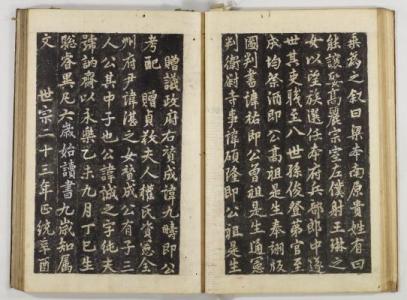 為之叙曰梁本南原貴姓有曰
能讓娶高麗宗室左僕射王琳之
女以望族選任本府兵部郎中遂
世其吏職至八世孫俊登第官至
成均祭酒即公高祖是生奉翊版
圖判書諱祐即公曾祖是生通憲
判衛尉寺事諱碩隆即公祖是生
贈議政府右贊成諱九疇即公
考配 贈貞敬夫人權氏資憲全
州府尹諱湛之女贊成公有子三
人公其中子也公諱誠之字純夫
號訥齋以永樂乙未九月丁巳生
聡睿異凡六歲始讀書九歲知属
文 世宗二十三年正統辛酉